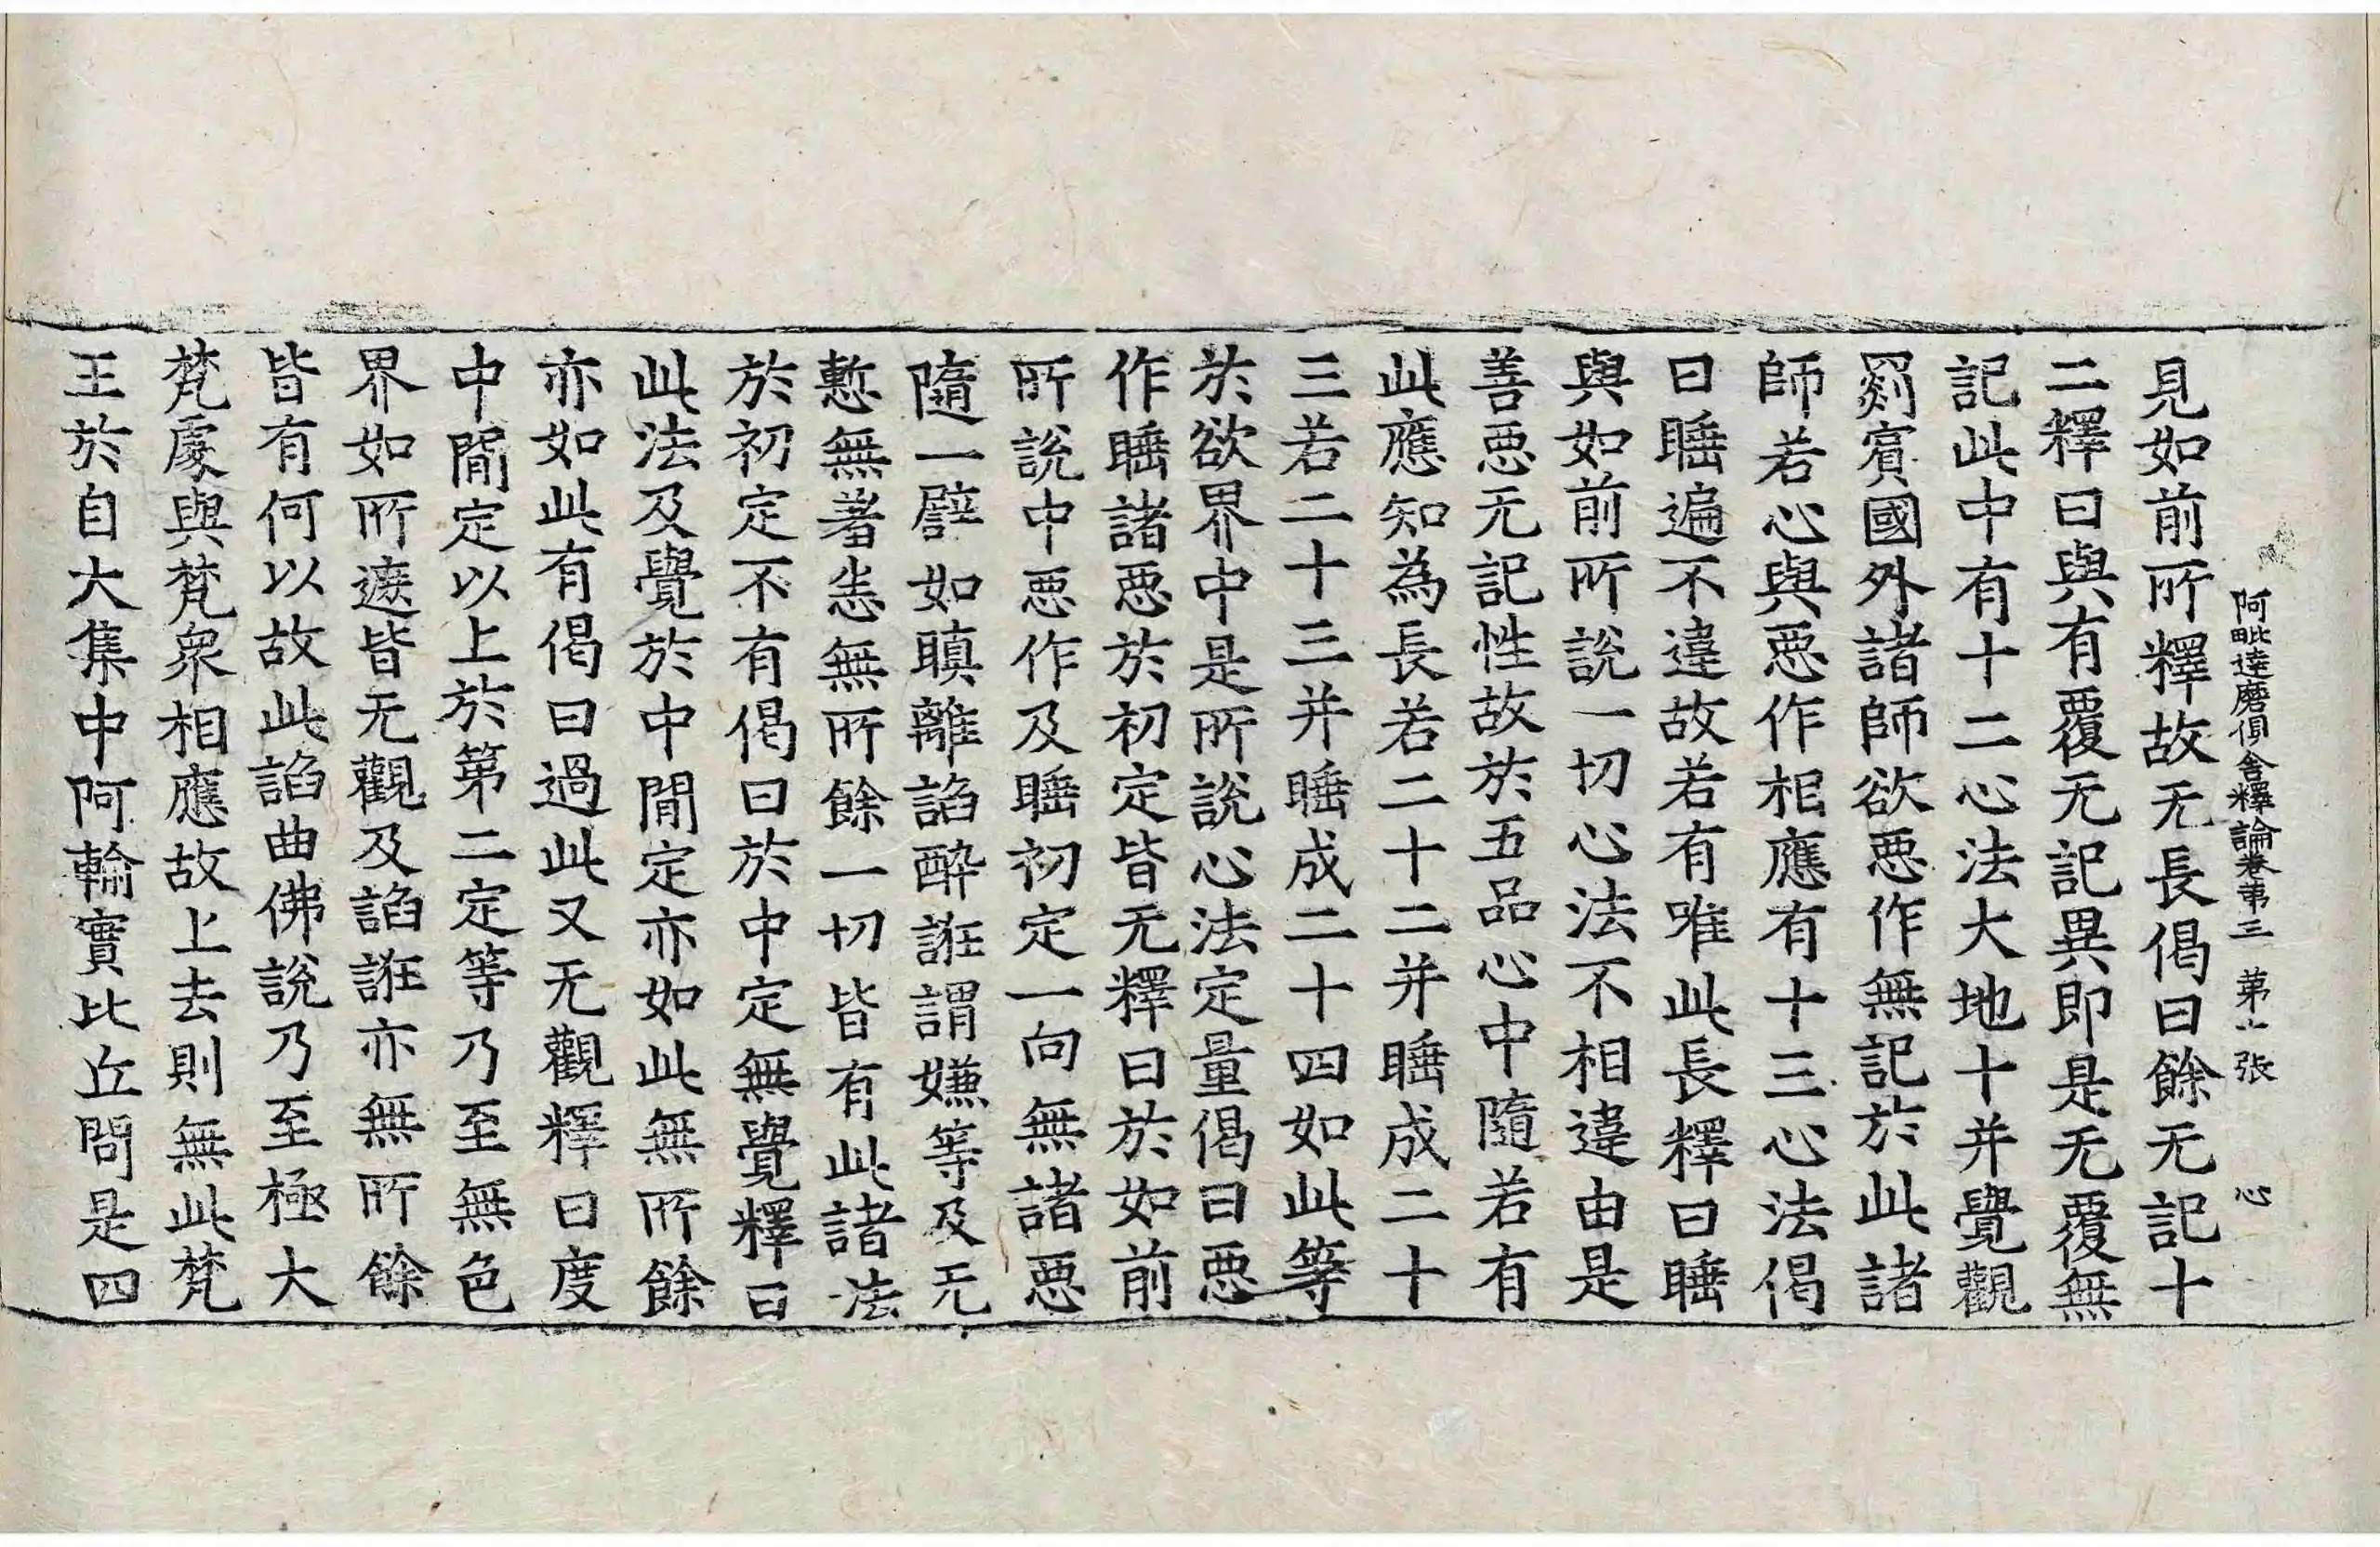 阿毗達磨俱舍釋論卷第三 第十張 心
見如前所釋故无長偈曰餘无記十
二釋曰與有覆无記異即是无覆無
記此中有十二心法大地十并覺觀
罽賓國外諸師欲惡作無記於此諸
師若心與惡作相應有十三心法偈
曰睡遍不違故若有唯此長釋曰睡
與如前所說一切心法不相違由是
善惡无記性故於五品心中隨若有
此應知為長若二十二并睡成二十
三若二十三并睡成二十四如此等
於欲界中是所說心法定量偈曰惡
作睡諸惡於初定皆无釋曰於如前
所說中惡作及睡初定一向無諸惡
隨一譬如瞋離諂醉誑謂嫌等及无
慙無著恙無所餘一切皆有此諸法
於初定不有偈曰於中定無覺釋曰
此法及覺於中間定亦如此無所餘
亦如此有偈曰過此又无觀釋曰度
中間定以上於第二定等乃至無色
界如所遮皆无觀及諂誑亦無所餘
皆有何以故此諂曲佛說乃至極大
梵處與梵衆相應故上去則無此梵
王於自大集中阿輸實比丘問是四